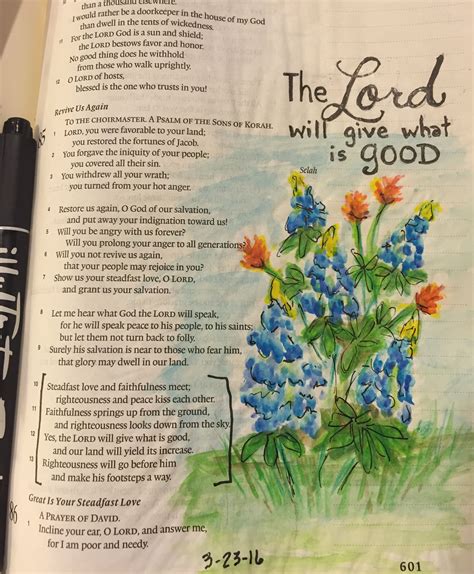 than a thousand elsewhere.
I would rather be a doorkeeper in the house of my God
than dwell in the tents of wickedness.
11 For the LORD God is a sun and shield;
the LORD bestows favor and honor.
No good thing does he withhold
from those who walk uprightly.
12 O LORD of hosts,
blessed is the one who trusts in you!
Revive Us Again
85 TO THE CHOIRMASTER. A PSALM OF THE SONS OF KORAH.
1 LORD, you were favorable to your land;
you restored the fortunes of Jacob.
2 You forgave the iniquity of your people;
you covered all their sin.
Selah
3 You withdrew all your wrath;
you turned from your hot anger.
4 Restore us again, O God of our salvation,
and put away your indignation toward us!
5 Will you be angry with us forever?
Will you prolong your anger to all generations?
6 Will you not revive us again,
that your people may rejoice in you?
7 Show us your steadfast love, O LORD,
and grant us your salvation.
8 Let me hear what God the LORD will speak,
for he will speak peace to his people, to his saints;
but let them not turn back to folly.
9 Surely his salvation is near to those who fear him,
that glory may dwell in our land.
10 Steadfast love and faithfulness meet;
righteousness and peace kiss each other.
11 Faithfulness springs up from the ground,
and righteousness looks down from the sky.
12 Yes, the LORD will give what is good,
and our land will yield its increase.
13 Righteousness will go before him
and make his footsteps a way.
Great Is Your Steadfast Love
86 A PRAYER OF DAVID.
1 Incline your ear, O LORD, and answer me,
for I am poor and needy.
The Lord
will give what
is GOOD
3-23-16
601